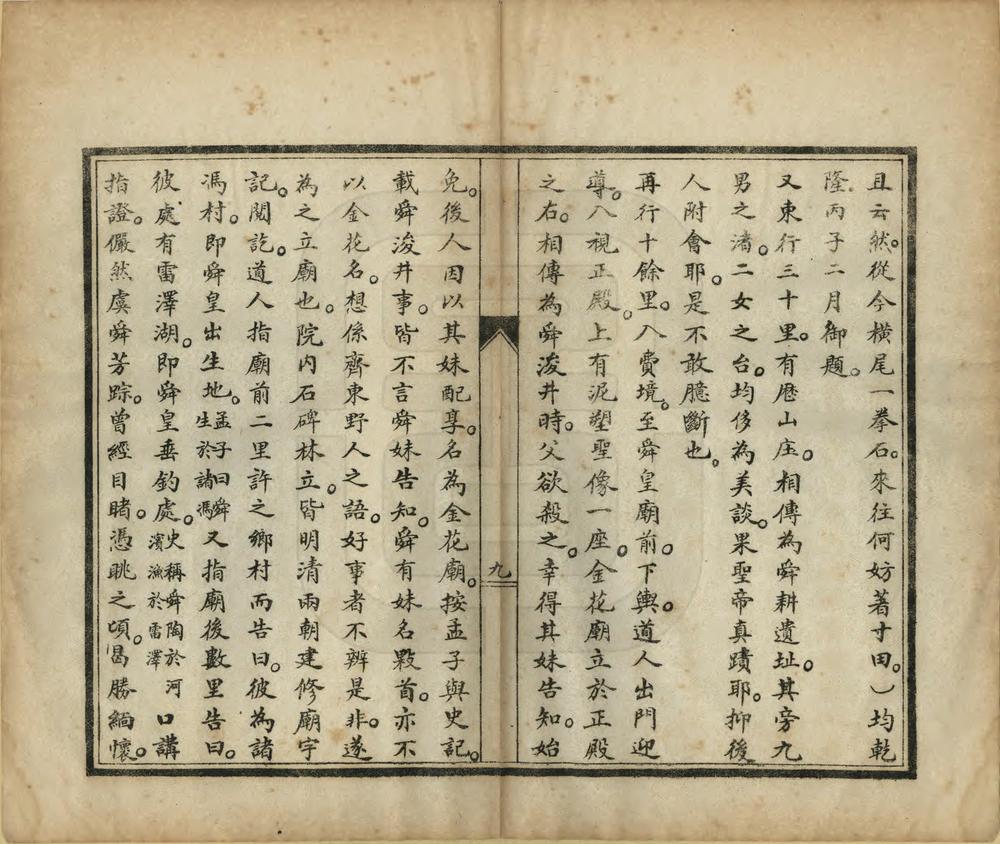 且云然。從今橫尾一拳石。來往何妨著寸田。）均乾
隆丙子二月御題。
又東行三十里。有歷山庄。相傳為舜耕遺址。其旁九
男之渚。二女之台。均侈為美談。果聖帝真蹟耶。抑後
人附會耶。是不敢臆斷也。
再行十餘里。入費境。至舜皇廟前。下輿。道人出門迎
導。入視正殿。上有泥塑聖像一座。金花廟立於正殿
之右。相傳為舜浚井時。父欲殺之。幸得其妹告知。始
九
免。後人因以其妹配享。名為金花廟。按孟子與史記。
載舜浚井事。皆不言舜妹告知。舜有妹名敤首。亦不
以金花名。想係齊東野人之語。好事者不辨是非。遂
為之立廟也。院內石碑林立。皆明清兩朝建修廟宇
記。閱訖。道人指廟前二里許之鄉村而告曰。彼為諸
馮村。即舜皇出生地。孟子曰舜生於諸馮又指廟後數里告曰。
彼處有雷澤湖。即舜皇垂釣處。史稱舜陶於河濱漁於雷澤口講
指證。儼然虞舜芳踪。曾經目睹。憑眺之頃。曷勝緬懷。